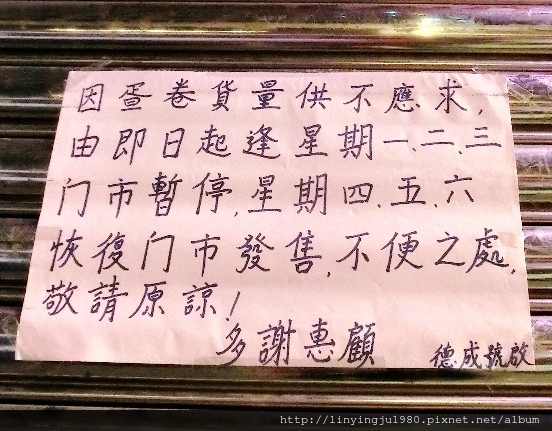 因蛋卷貨量供不應求,
由即日起逢星期一、二、三
门市暫停,星期四、五、六
恢復门市發售,不便之處,
敬請原諒!
多謝惠顧
德成號啟
http://linyingju1980.pixnet.net/album